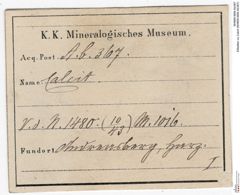 K. K. Mineralogisches Museum.
Acq. Post. A. b. 367.
Name: Calcit.
V. d. N. 1480. (10/43) M. 1016.
Fundort Andreasberg, Harz.
I